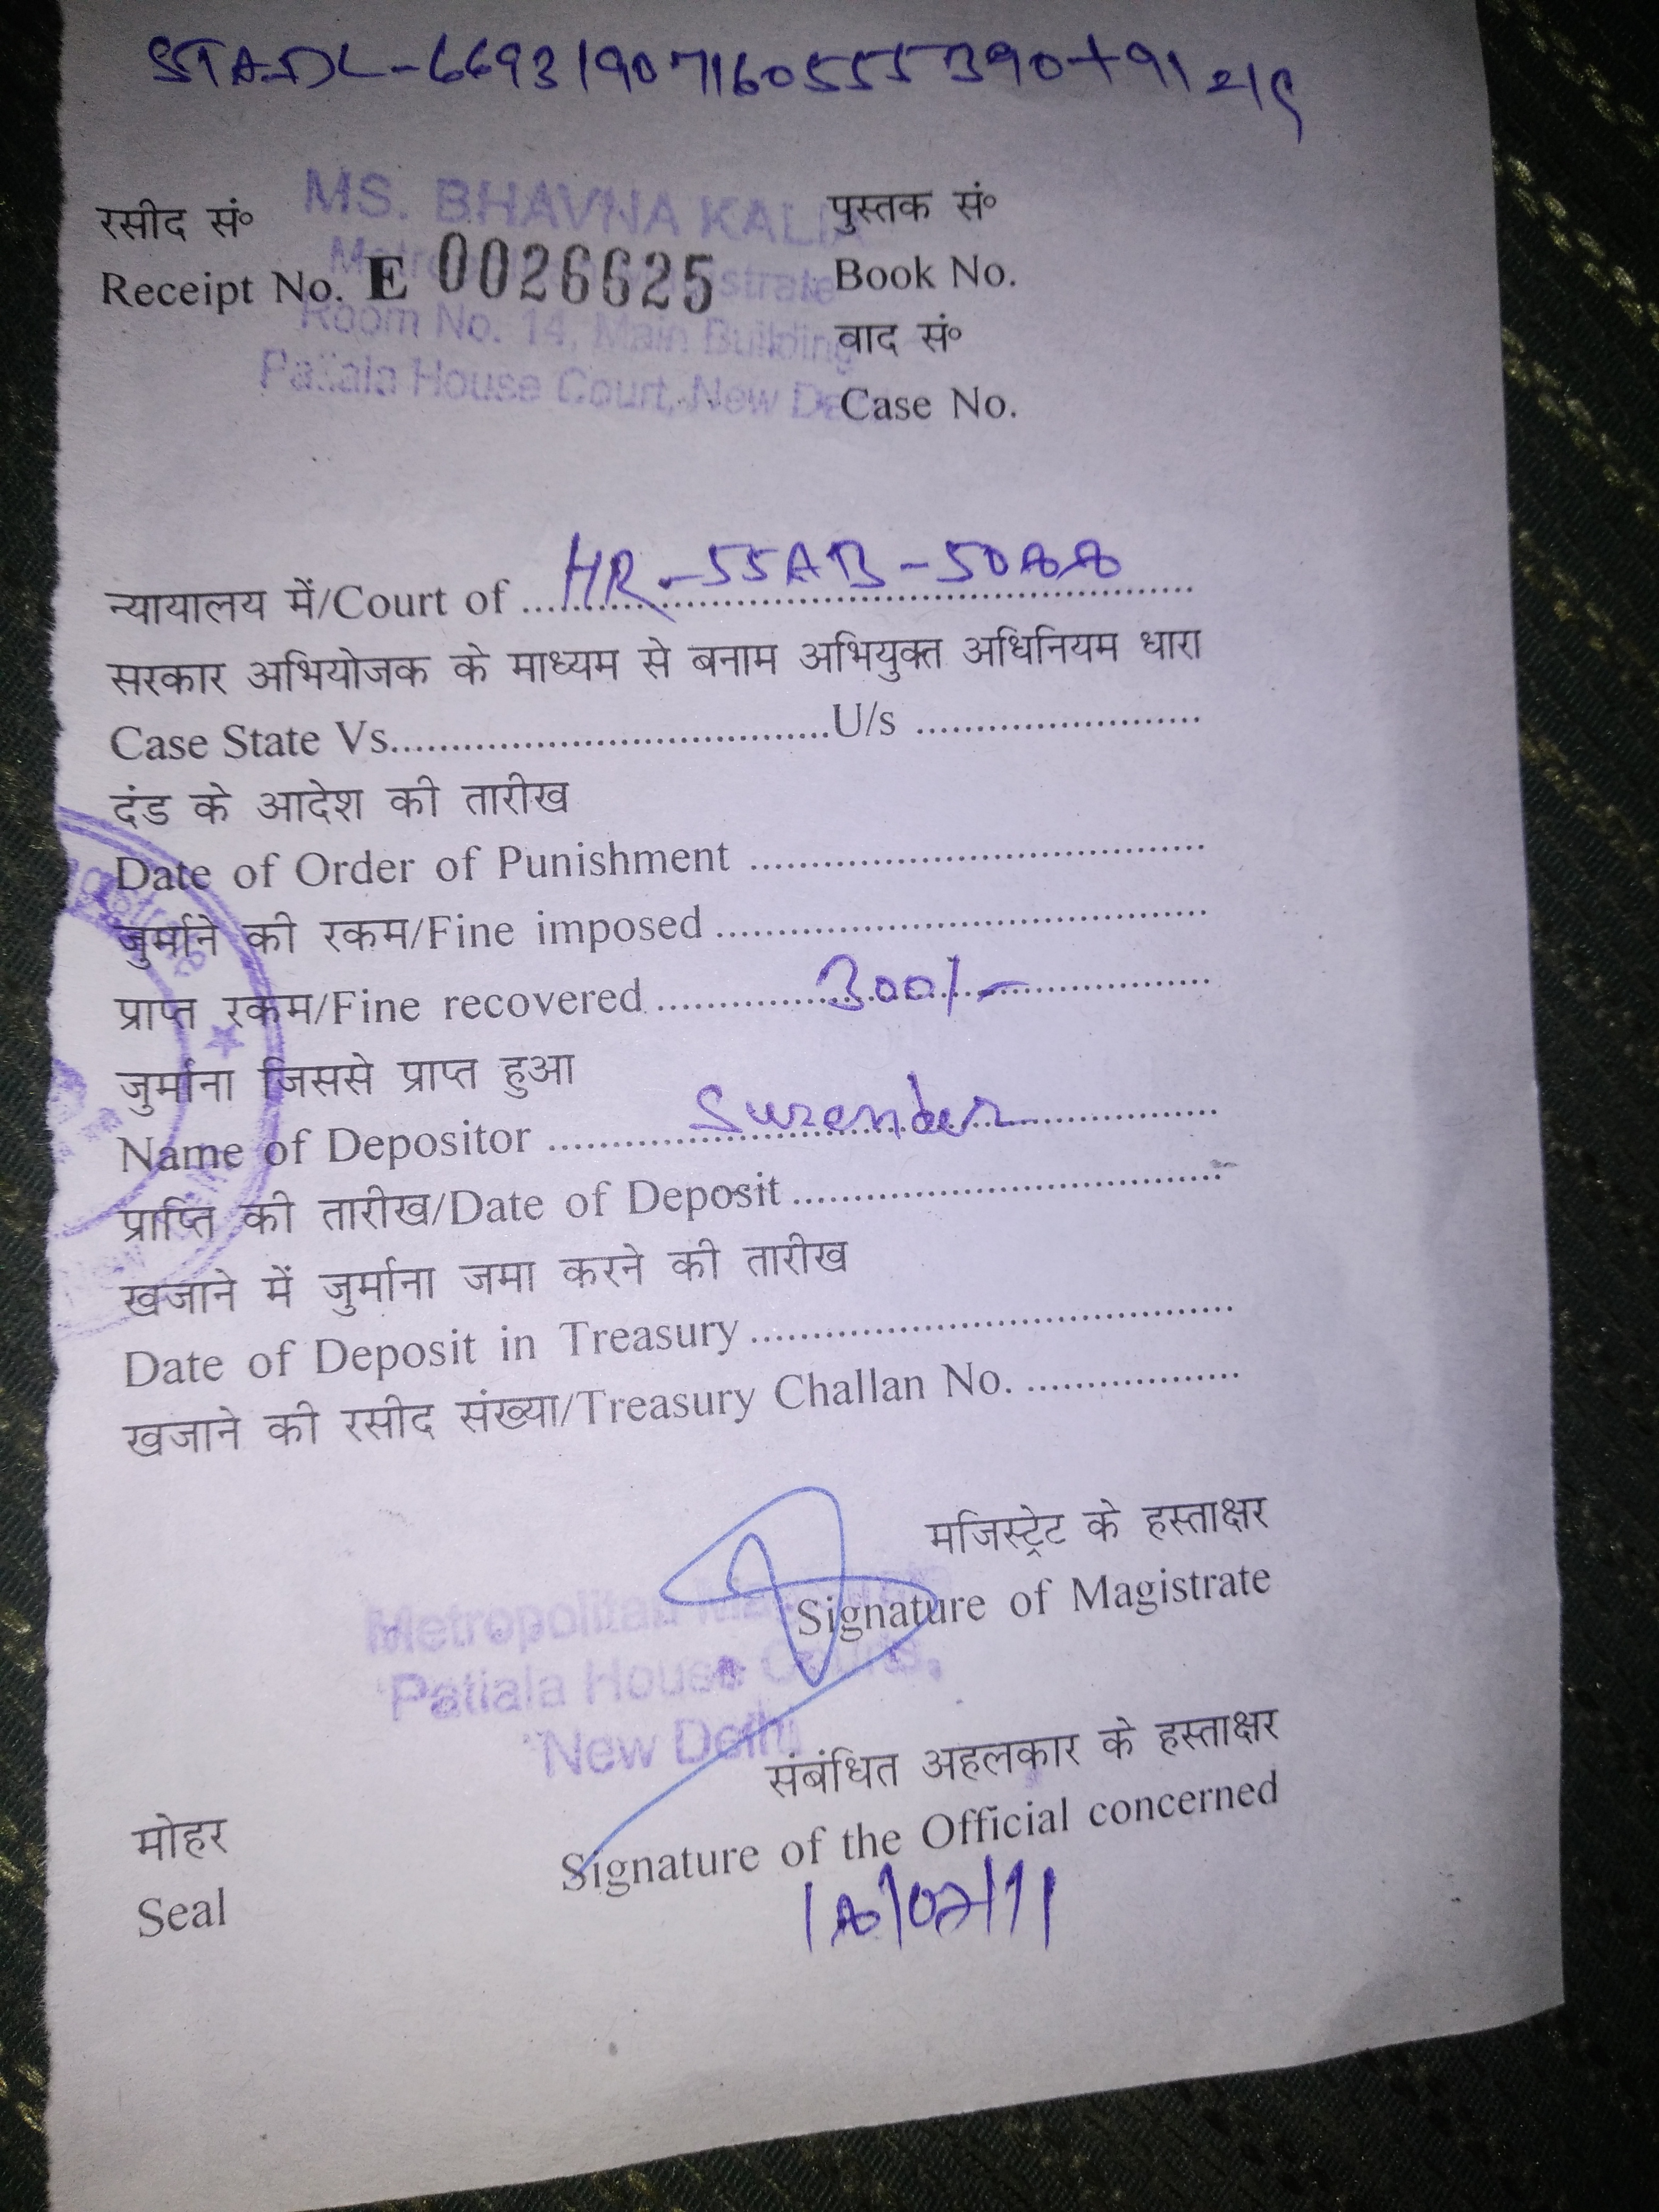 रसीद सं० MS. BHAVNA KALIA पुस्तक सं०
Receipt No. E 0026625 Book No.
Room No. 14, Main Building वाद सं०
Patiala House Court, New Case No.
न्यायालय में/Court of HR-55AB-5088
सरकार अभियोजक के माध्यम से बनाम अभियुक्त अधिनियम धारा
Case State Vs. U/s
दंड के आदेश की तारीख
Date of Order of Punishment
जुर्माने की रकम/Fine imposed
प्राप्त रकम/Fine recovered 300/-
जुर्माना जिससे प्राप्त हुआ
Name of Depositor Surender
प्राप्ति की तारीख/Date of Deposit
खजाने में जुर्माना जमा करने की तारीख
Date of Deposit in Treasury
खजाने की रसीद संख्या/Treasury Challan No.
मजिस्ट्रेट के हस्ताक्षर
Signature of Magistrate
Metropolitan
Patiala House
New Delhi
संबंधित अहलकार के हस्ताक्षर
Signature of the Official concerned
मोहर
Seal